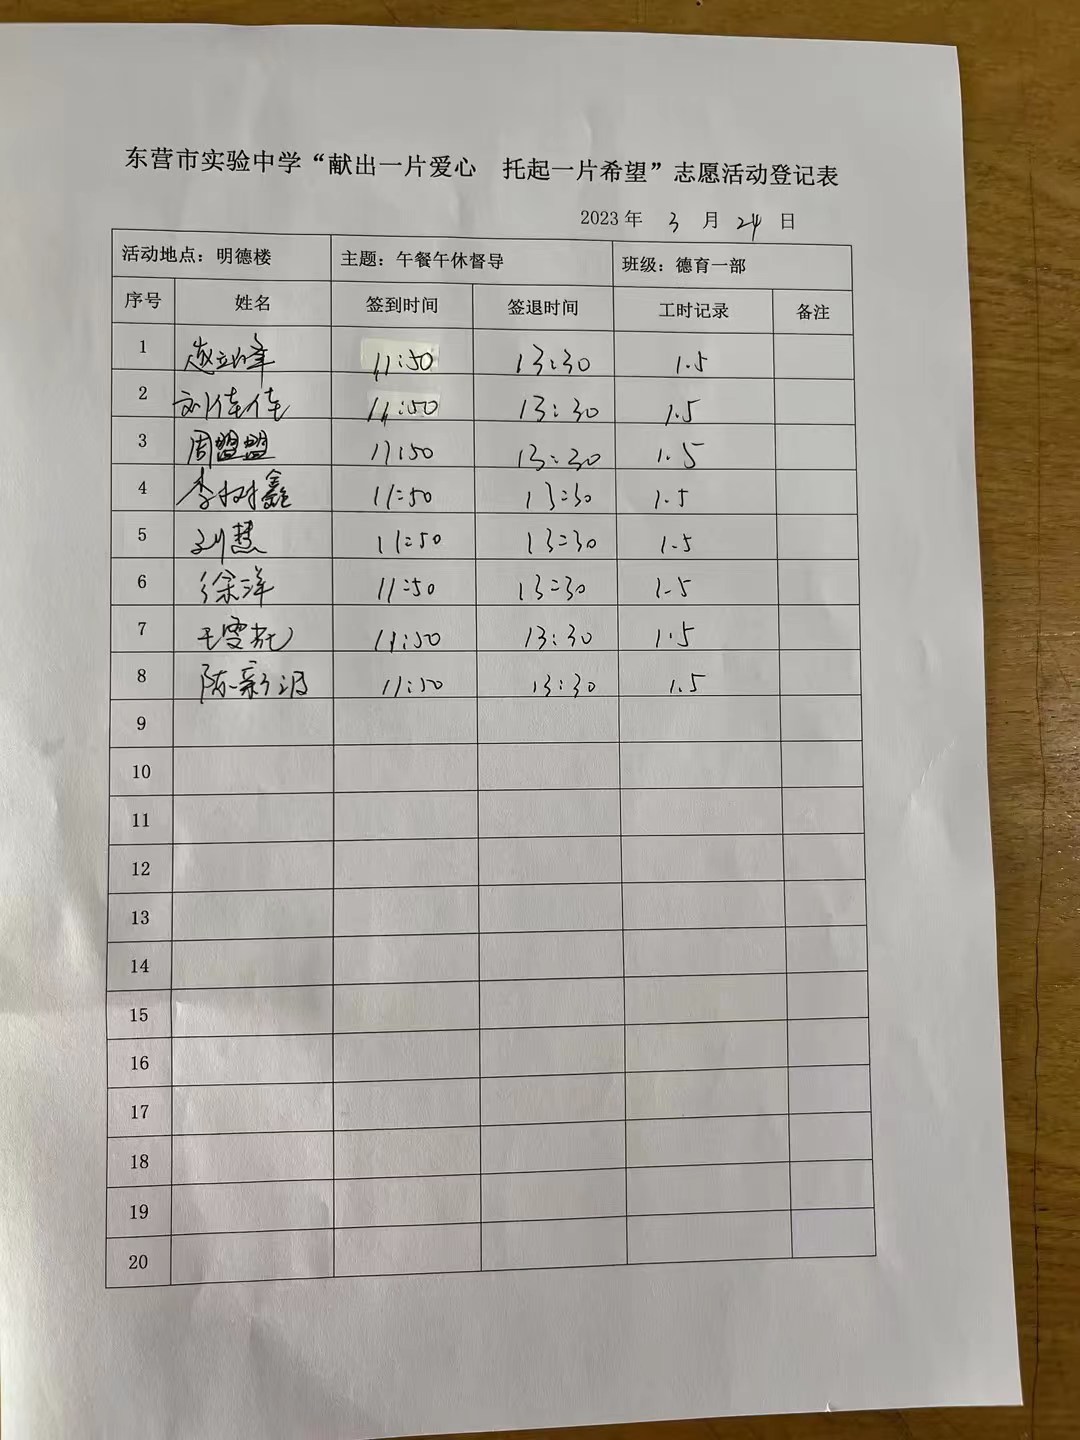 东营市实验中学“献出一片爱心 托起一片希望”志愿活动登记表
2023 年 3 月 24 日
活动地点：明德楼 主题：午餐午休督导 班级：德育一部
序号 姓名 签到时间 签退时间 工时记录 备注
1 11:50 13:30 1.5
2 刘佳佳 11:50 13:30 1.5
3 周盟盟 11:50 13:30 1.5
4 李树鑫 11:50 13:30 1.5
5 刘慧 11:50 13:30 1.5
6 徐洋 11:50 13:30 1.5
7 11:50 13:30 1.5
8 陈新 11:50 13:30 1.5
9
10
11
12
13
14
15
16
17
18
19
20